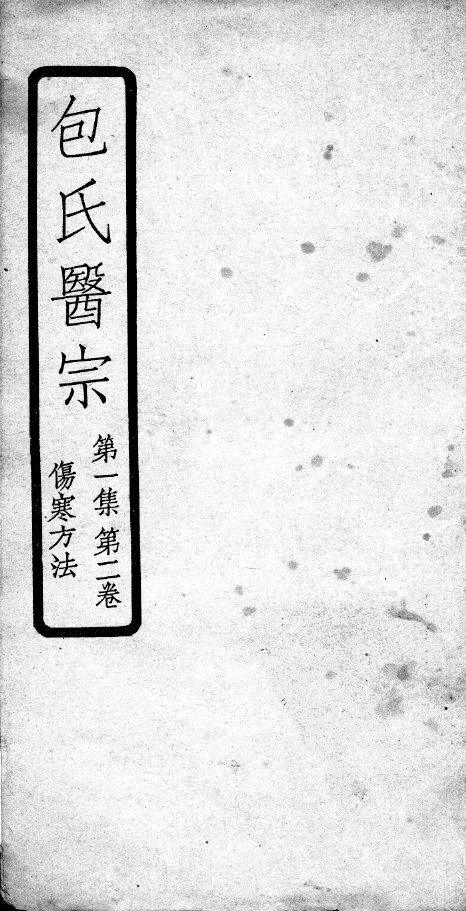 包氏醫宗
第一集 第二卷
傷寒方法